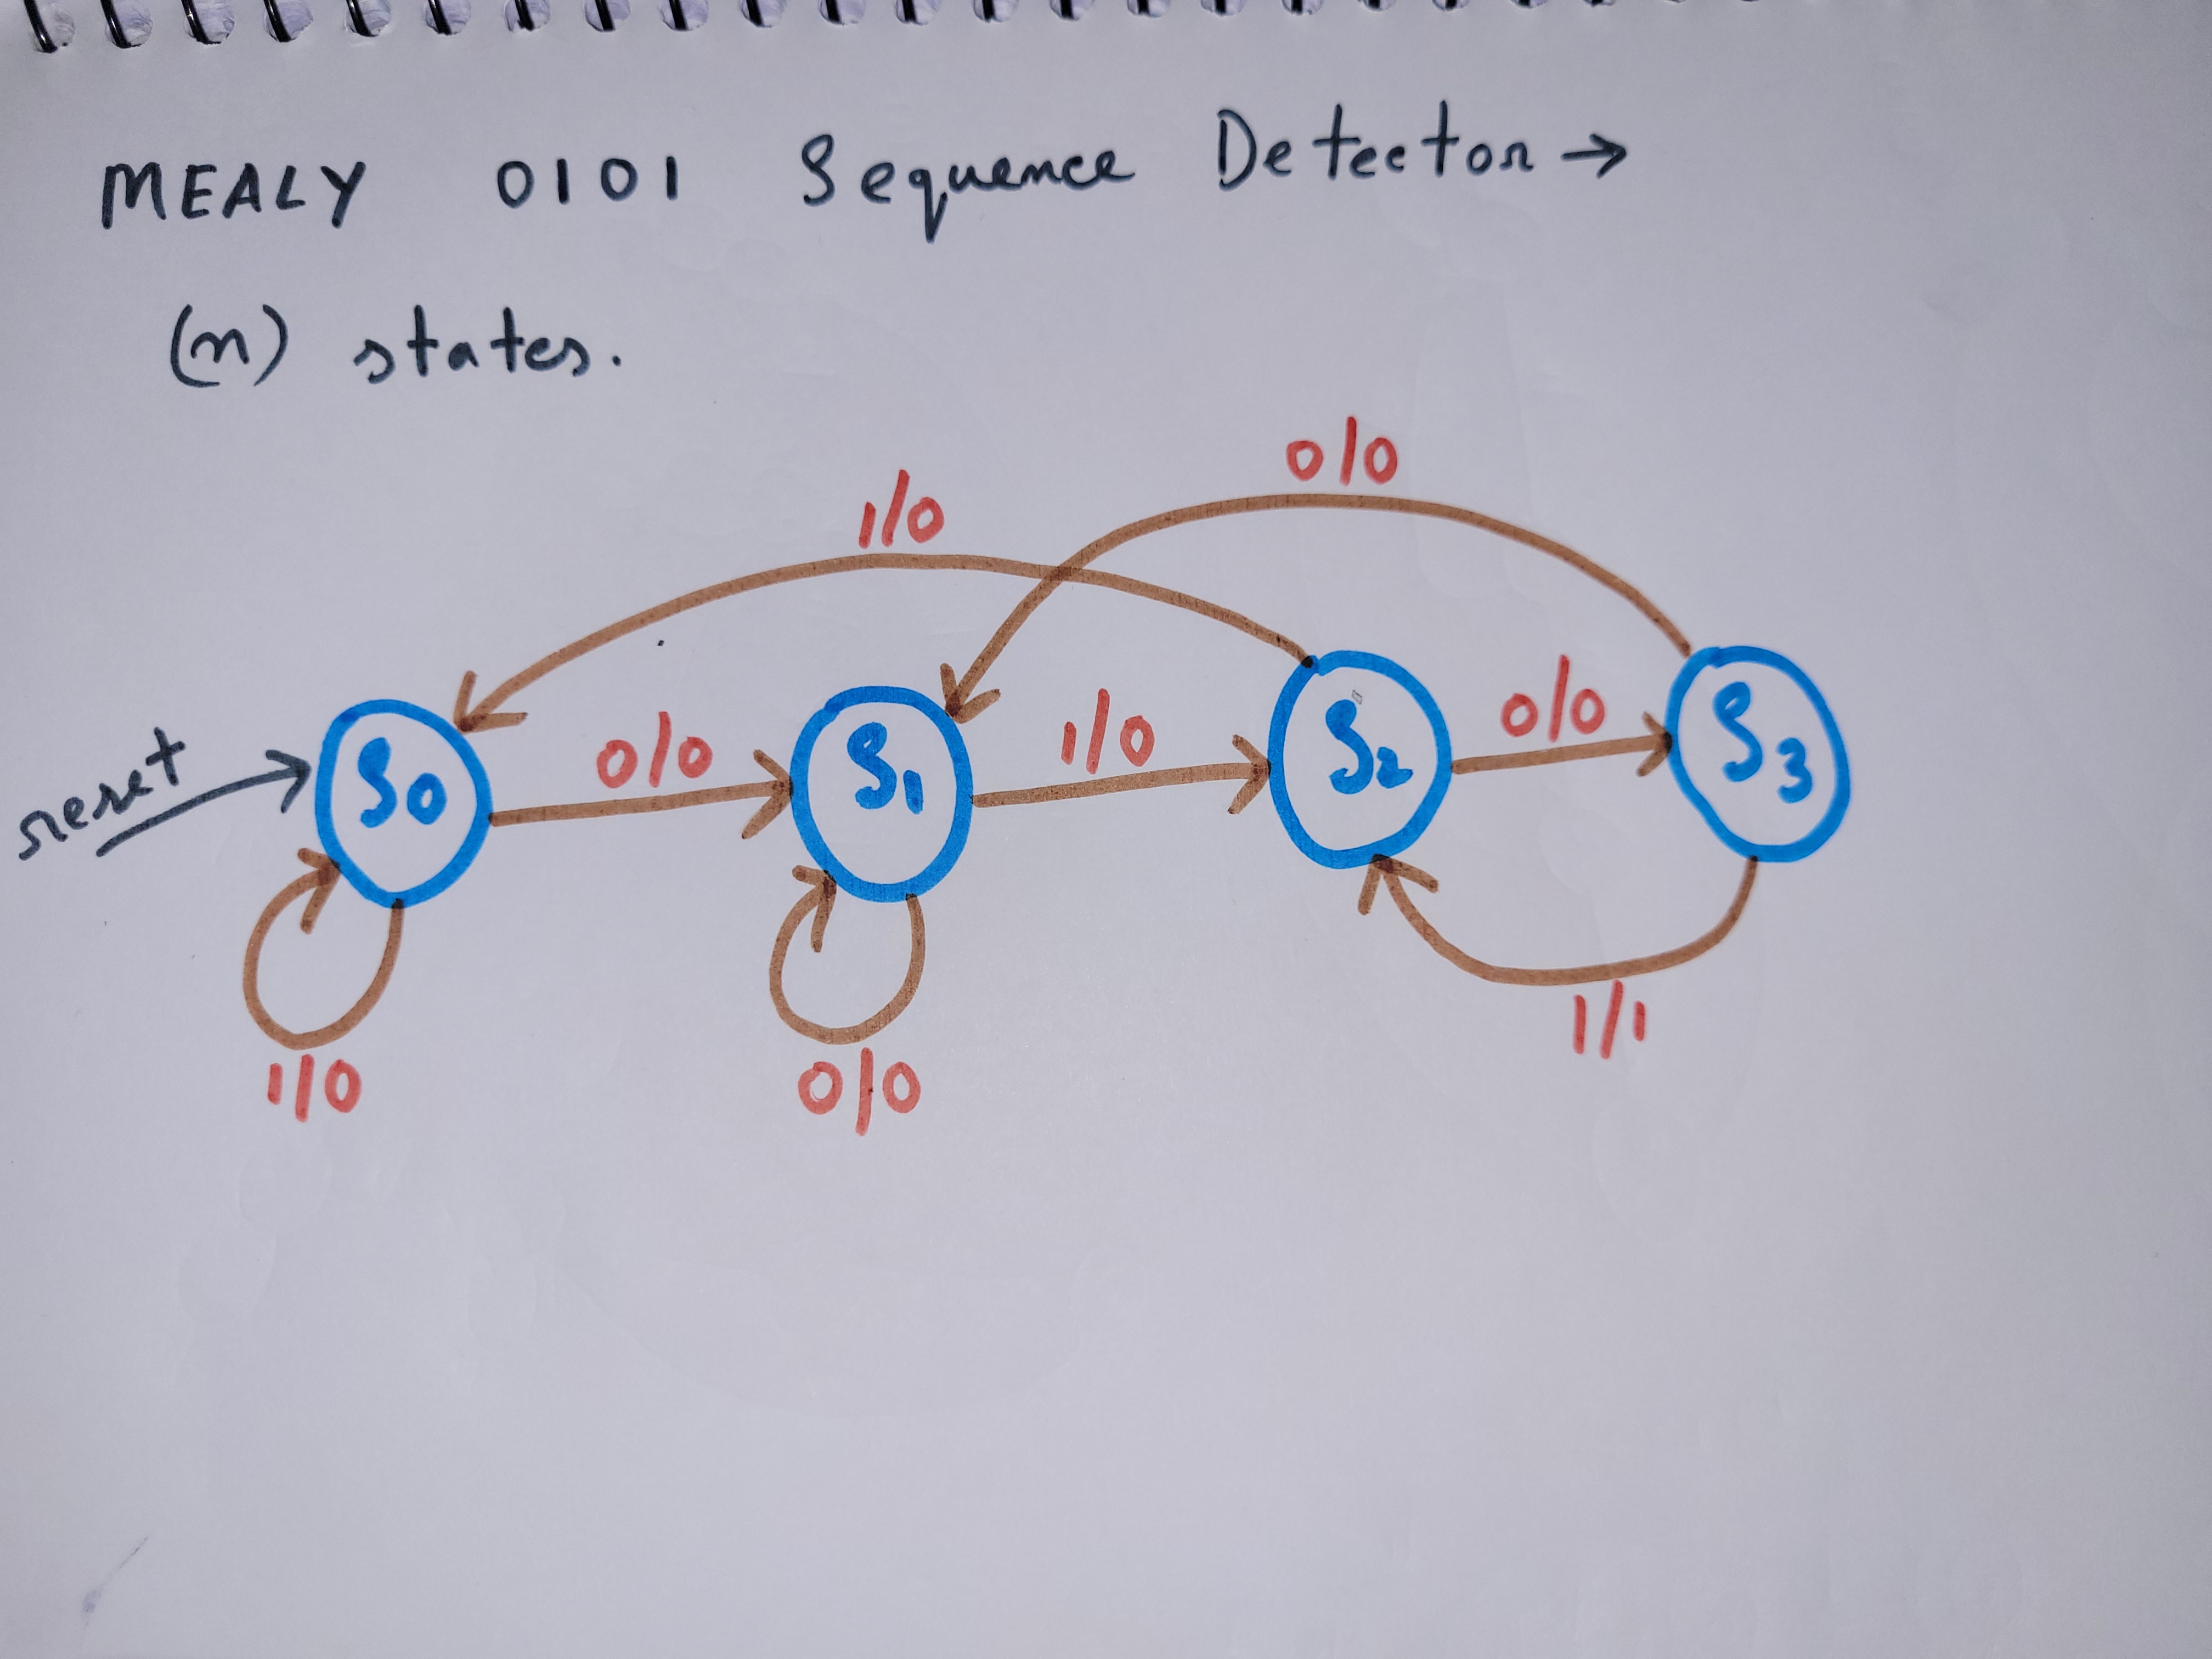 MEALY 0101 Sequence Detector →
(n) states.
0/0
1/0
reset
S0
0/0
S1
1/0
S2
0/0
S3
1/0
0/0
1/1